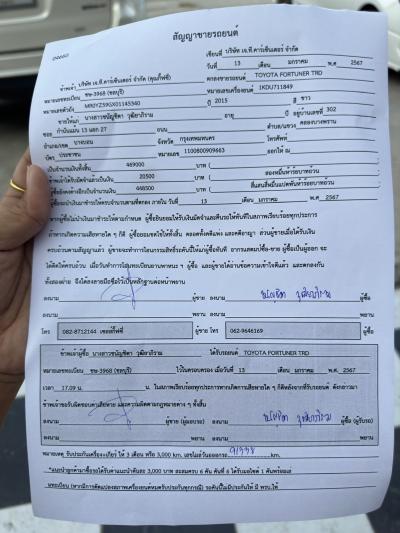 สัญญาขายรถยนต์
เขียนที่ บริษัท เจ.ที.คาร์เซ็นเตอร์ จำกัด
วันที่ 13 เดือน มกราคม พ.ศ 2567
ข้าพเจ้า บริษัท เจ.ที.คาร์เซ็นเตอร์ จำกัด ตกลงขายรถยนต์ TOYOTA FORTUNER TRD
หมายเลขทะเบียน ชษ-3968 (ชลบุรี) หมายเลขเครื่องยนต์ 1KDU711849
หมายเลขตัวถัง MR0YZ59GX01145340 ปี 2015 สี ขาว
ขายให้แก่ นางสาวชนัญชิดา วุฒิยาภิราม อายุ ปี อยู่บ้านเลขที่ 302
ซอย กำนันแม้น 13 แยก 27 ถนน ตำบล/แขวง คลองบางพราน
อำเภอ/เขต บางบอน จังหวัด กรุงเทพมหนคร โทรศัพท์
บัตร ประชาชน หมายเลข 1100800909663 ออกให้ ณ
เป็นจำนวนเงินทั้งสิ้น 469000 บาท (
ข้าพเจ้าได้รับมัดจำแล้วเป็นเงิน 20500 บาท ( สองหมื่นห้าร้อยบาทถ้วน
ผู้ซื้อยังคงค้างอีกเป็นจำนวนเงิน 448500 บาท ( สี่แสนสี่หมื่นแปดพันห้าร้อยบาทถ้วน
ผู้ซื้อจะนำเงินมาชำระให้ครบจำนวนตามที่ตกลง ภายใน วันที่ 13 เดือน มกราคม พ.ศ 2567
หากผู้ซื้อไม่นำเงินมาชำระให้ตามกำหนด ผู้ซื้อยินยอมให้ริบเงินมัดจำและคืนรถให้ทันทีในสภาพเรียบร้อยทุกประการ
ถ้าหากเกิดความเสียหายใด ๆ ก็ดี ผู้ซื้อยอมชดใช้ให้ทั้งสิ้น ตลอดทั้งคดีแพ่ง และคดีอาญา ส่วนผู้ขายเมื่อได้รับเงิน
ครบถ้วนตามสัญญาแล้ว ผู้ขายจะทำการโอนกรรมสิทธิ์รถคันนี้ให้แก่ผู้ซื้อทันที อากรแสตมป์ซื้อ-ขาย ผู้ซื้อเป็นผู้ออก จะ
ทั้งสองฝ่าย จึงได้ลงลายมือชื่อไว้เป็นหลักฐานต่อหน้าพยาน
ลงนาม ผู้ขาย ลงนาม ผู้ซื้อ
ลงนาม พยาน ลงนาม พยาน
โทร 082-8712144 เซลล์กิ๊ฟซี่ ผู้ขาย โทร 062-9646169 ผู้ซื้อ
ข้าพเจ้าผู้ซื้อ นางสาวชนัญชิดา วุฒิยาภิราม ได้รับรถยนต์ TOYOTA FORTUNER TRD
หมายเลขทะเบียน ชษ-3968 (ชลบุรี) ไว้ในครอบครอง เมื่อวันที่ 13 เดือน มกราคม พ.ศ. 2567
เวลา 17.09 น. น. ในสภาพเรียบร้อยทุกประการหากเกิดการเสียหายใด ๆ
ลงนาม ผู้ขาย (ผู้มอบรถ) ลงนาม ผู้ซื้อ (ผู้รับรถ)
ลงนาม พยาน ลงนาม พยาน
หมายเหตุ รับประกันเครื่อง+เกียร์ ให้ 3 เดือน หรือ 3,000 km. เลขไมล์วันออกรถ 91338 km.